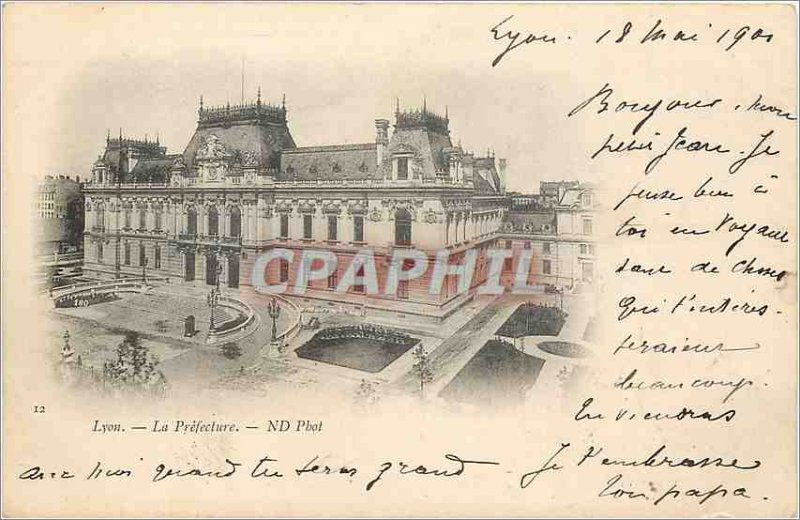 Lyon. 18 Mai 1901
Bonjour, mon
petit Jean. Je
pense bien à
toi en voyant
tant de choses
qui t'intéres-
seraient
beaucoup.
Tu viendras
avec moi quand tu seras grand
Je t'embrasse
Ton papa.
CPARAPHIL
12
Lyon. — La Préfecture. — ND Phot